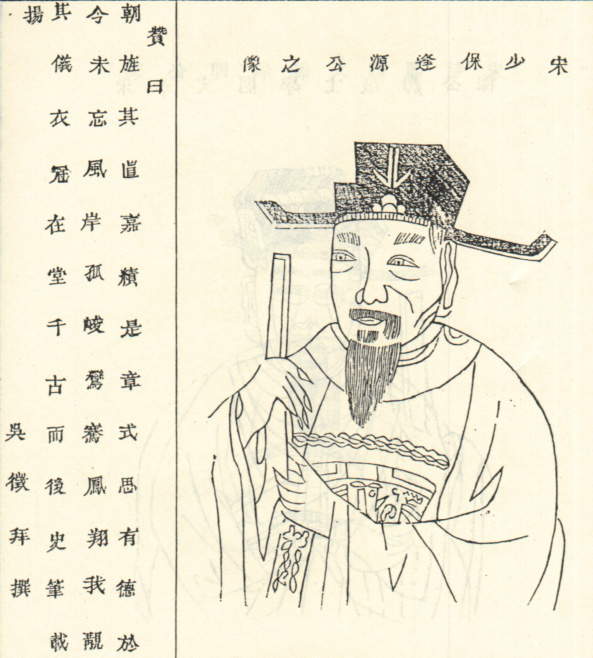 宋少保逢源公之像
贊曰
朝旌其直嘉績是章式思有德於
今未忘風岸孤峻鸞騫鳳翔我覯
其儀衣冠在堂千古而後史筆載
揚
吳徵拜撰